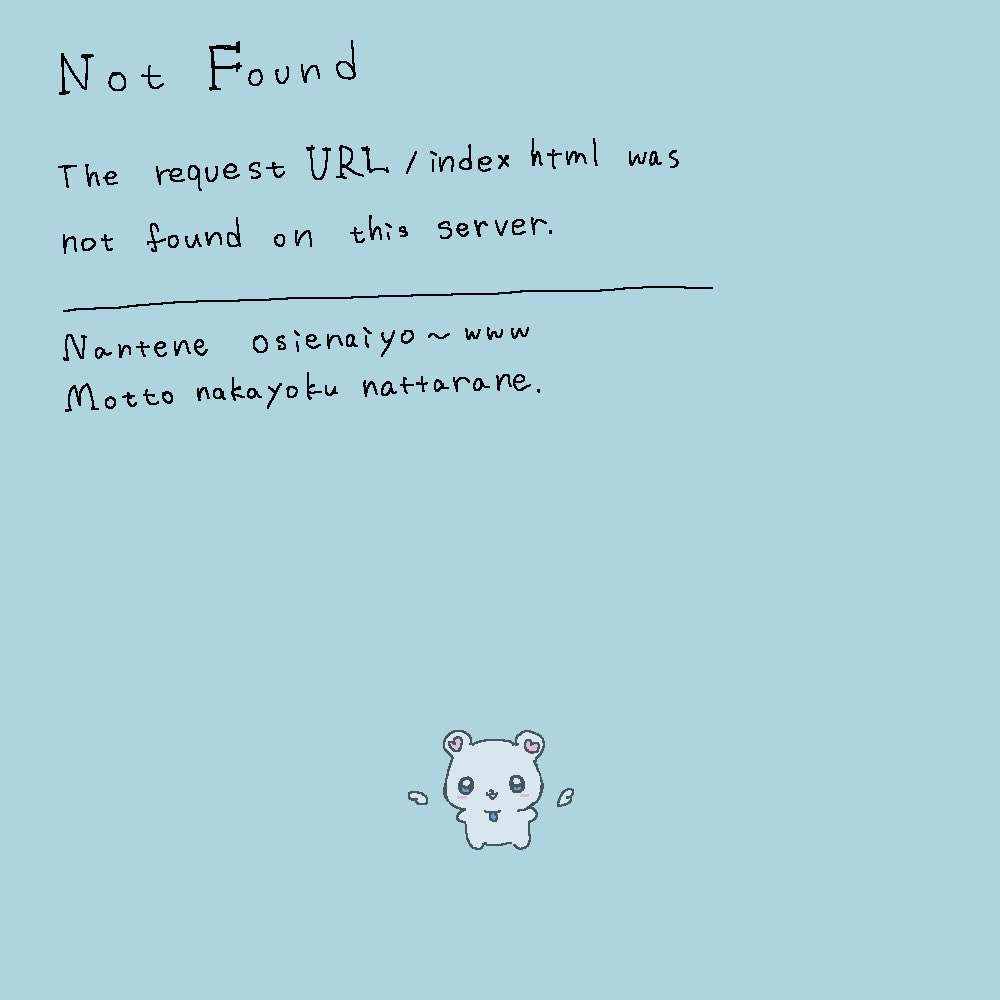 Not Found
The request URL /index html was
not found on this server.
Nantene osienaiyo~www
Motto nakayoku nattarane.